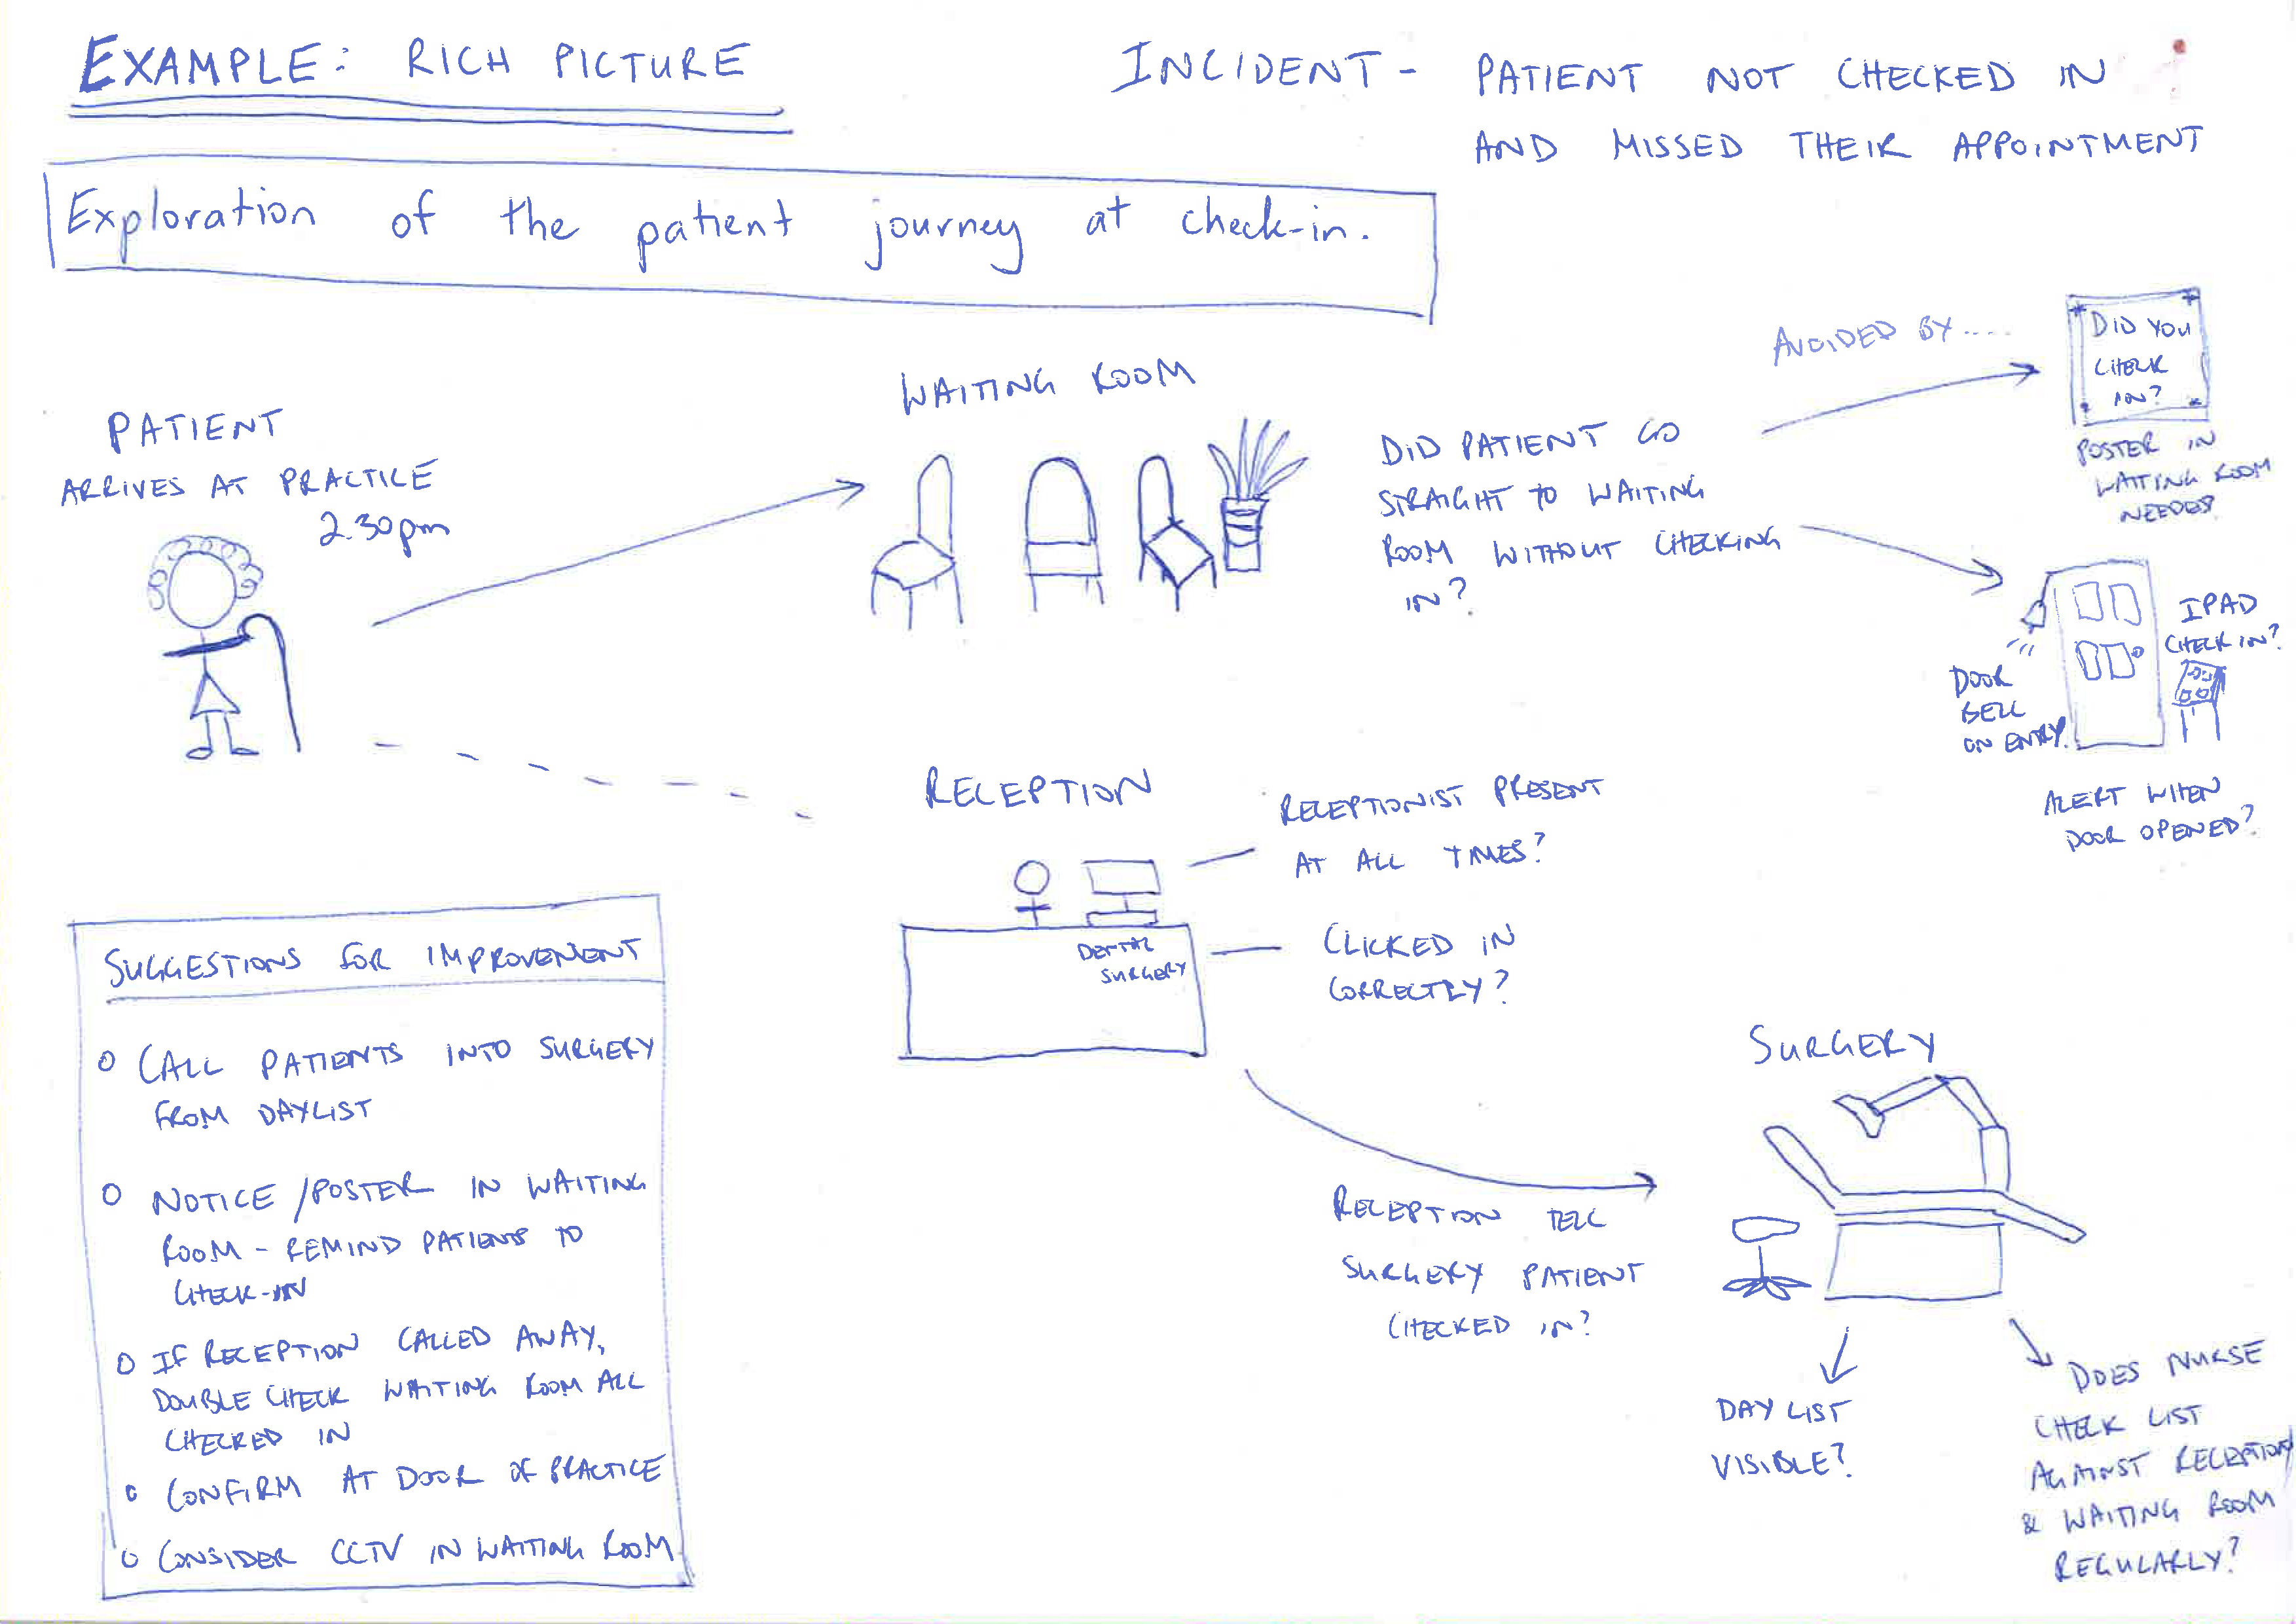 EXAMPLE: RICH PICTURE
INCIDENT - PATIENT NOT CHECKED IN
AND MISSED THEIR APPOINTMENT
Exploration of the patient journey at check-in.
PATIENT
ARRIVES AT PRACTICE
2.30pm
WAITING ROOM
DID PATIENT GO
STRAIGHT TO WAITING
ROOM WITHOUT CHECKING
IN?
AVOIDED BY.....
DID YOU
CHECK
IN?
POSTER IN
WAITING ROOM
NEEDED?
IPAD
CHECK IN?
DOOR
BELL
ON ENTRY.
ALERT WHEN
DOOR OPENED?
RECEPTION
RECEPTIONIST PRESENT
AT ALL TIMES?
DENTAL
SURGERY
CLICKED IN
CORRECTLY?
RECEPTION TELL
SURGERY PATIENT
CHECKED IN?
SURGERY
DAY LIST
VISIBLE?
DOES NURSE
CHECK LIST
AGAINST RECEPTION
& WAITING ROOM
REGULARLY?
SUGGESTIONS FOR IMPROVEMENT
o CALL PATIENTS INTO SURGERY
FROM DAYLIST
o NOTICE/POSTER IN WAITING
ROOM - REMIND PATIENTS TO
CHECK-IN
o IF RECEPTION CALLED AWAY,
DOUBLE CHECK WAITING ROOM ALL
CHECKED IN
o CONFIRM AT DOOR OF PRACTICE
o CONSIDER CCTV IN WAITING ROOM